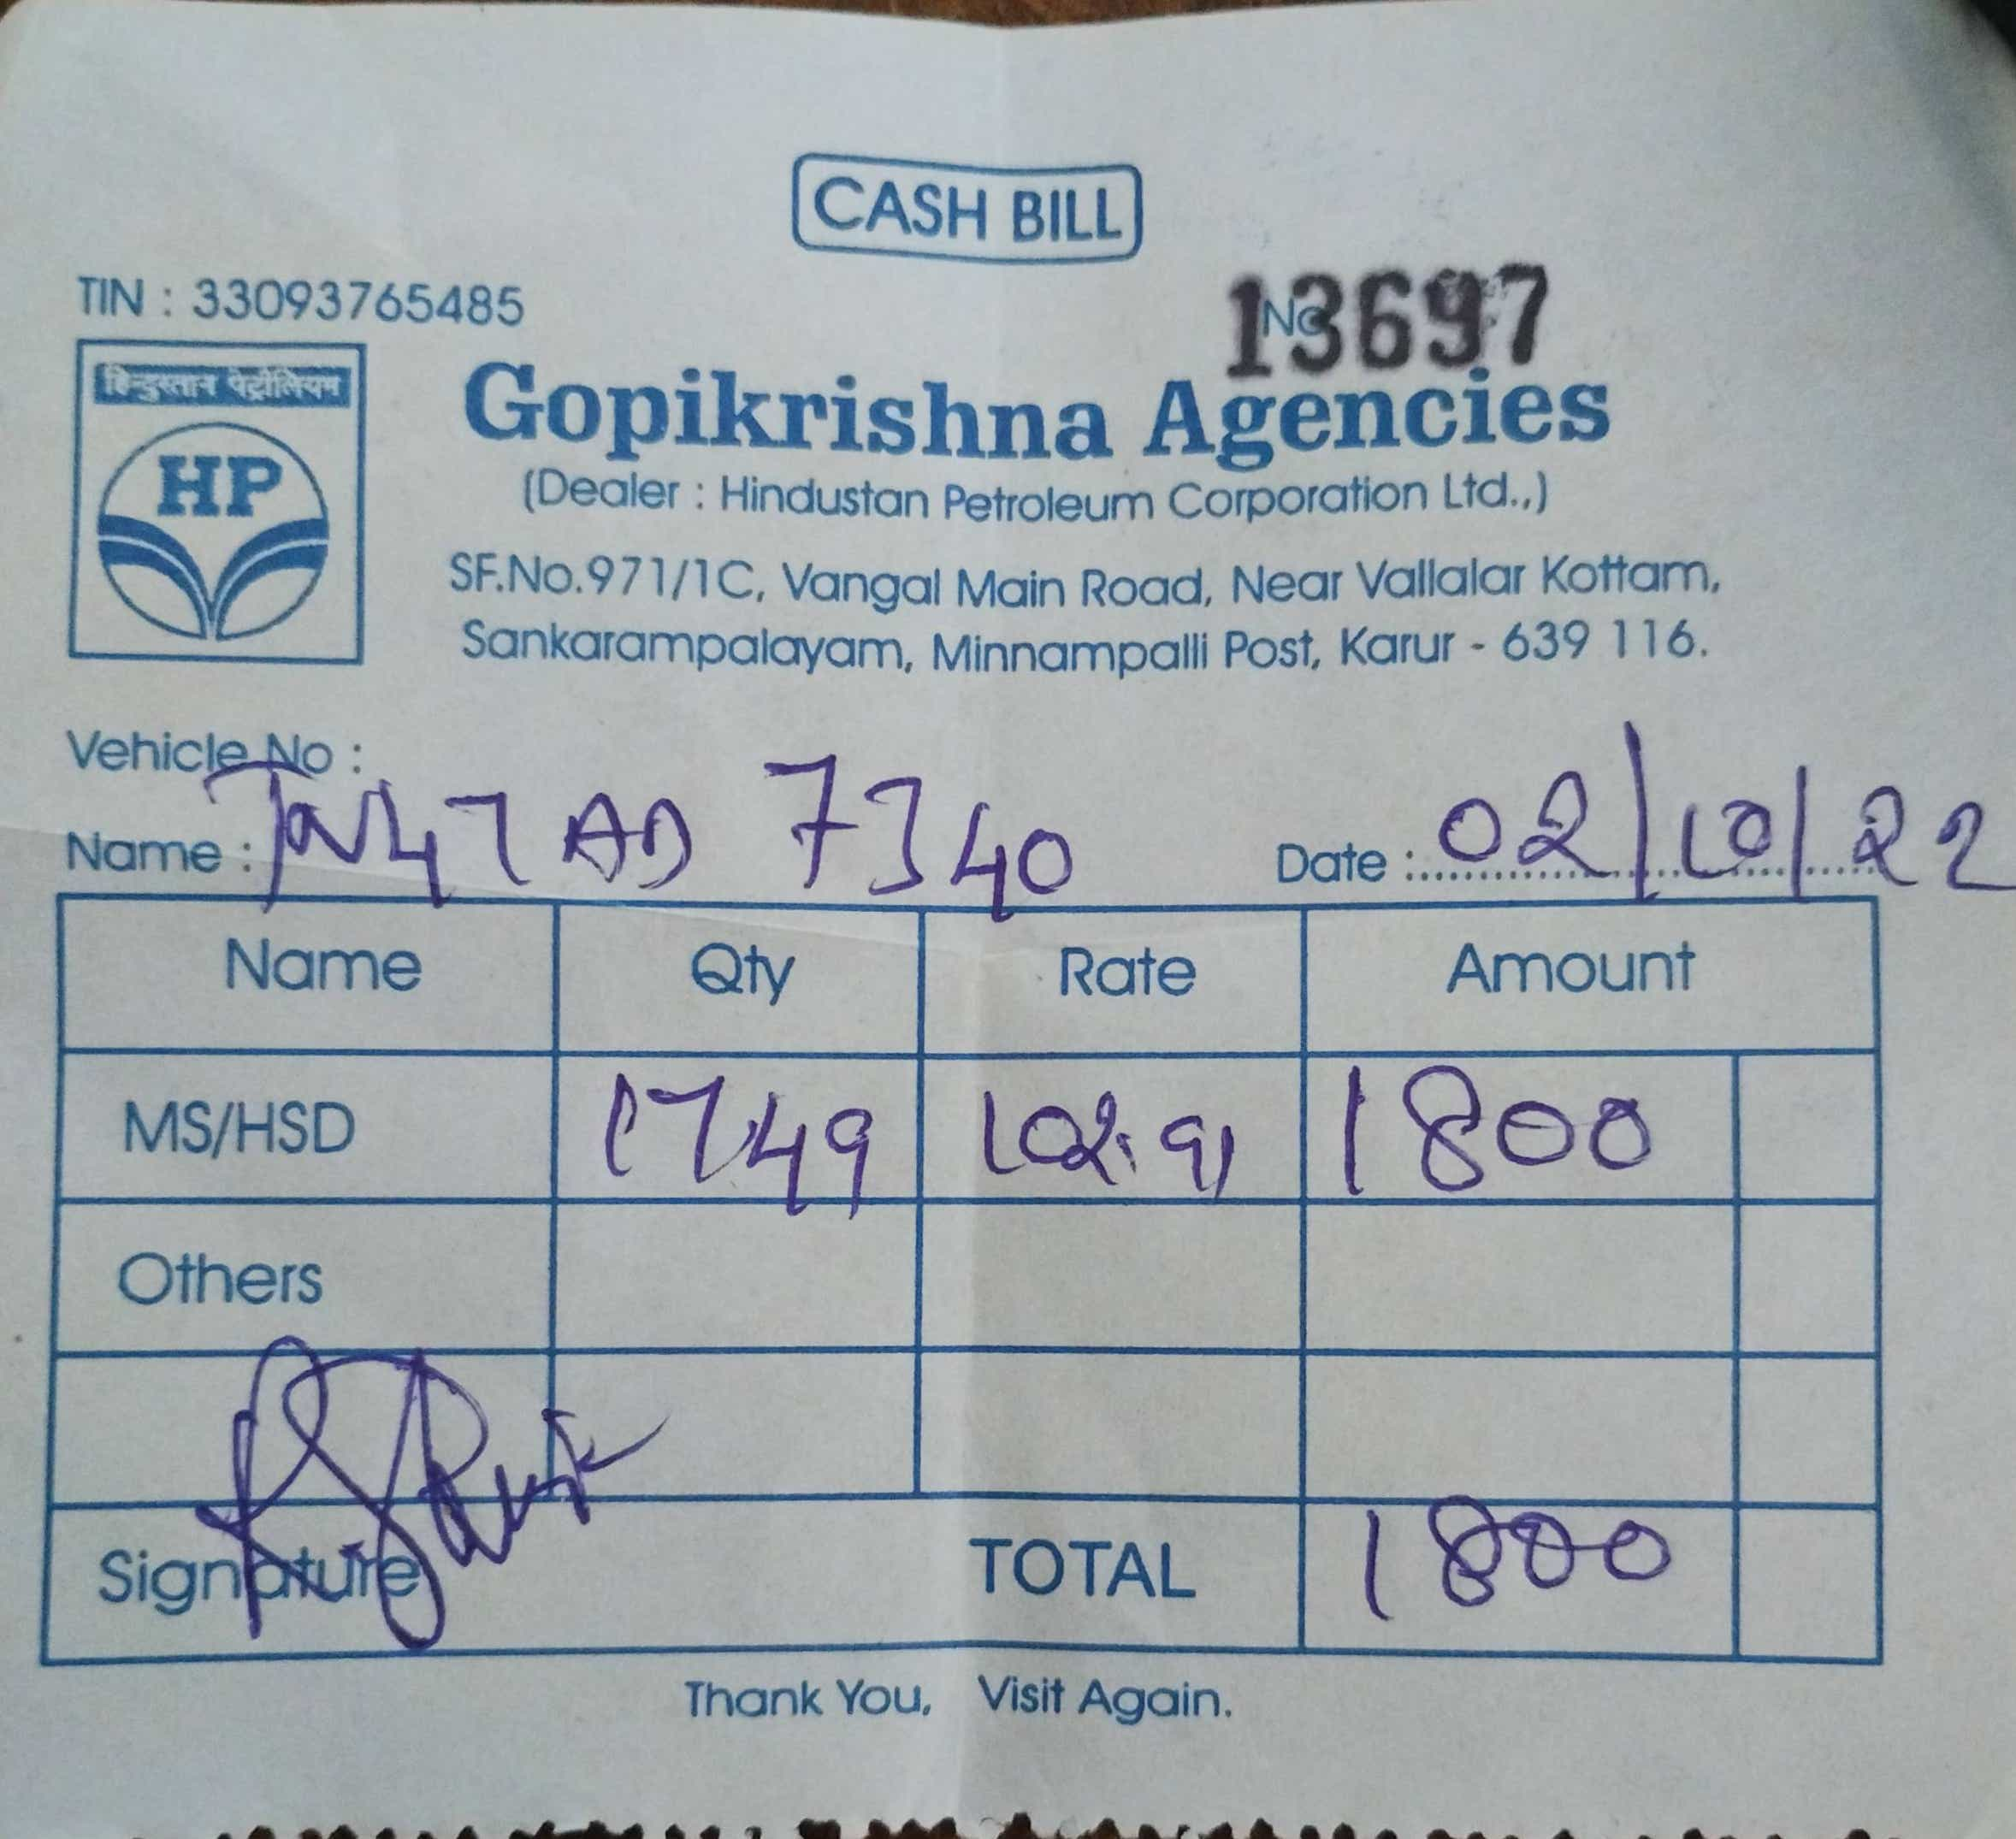 CASH BILL
TIN : 33093765485
No. 13697
हिन्दुस्तान पेट्रोलियम
HP
Gopikrishna Agencies
(Dealer : Hindustan Petroleum Corporation Ltd.,)
SF.No.971/1C, Vangal Main Road, Near Vallalar Kottam,
Sankarampalayam, Minnampalli Post, Karur - 639 116.
Vehicle No :
Name : TN47 AD 7340 Date : 02/10/22
Name Qty Rate Amount
MS/HSD 17.49 102.91 1800
Others
Signature TOTAL 1800
Thank You, Visit Again.